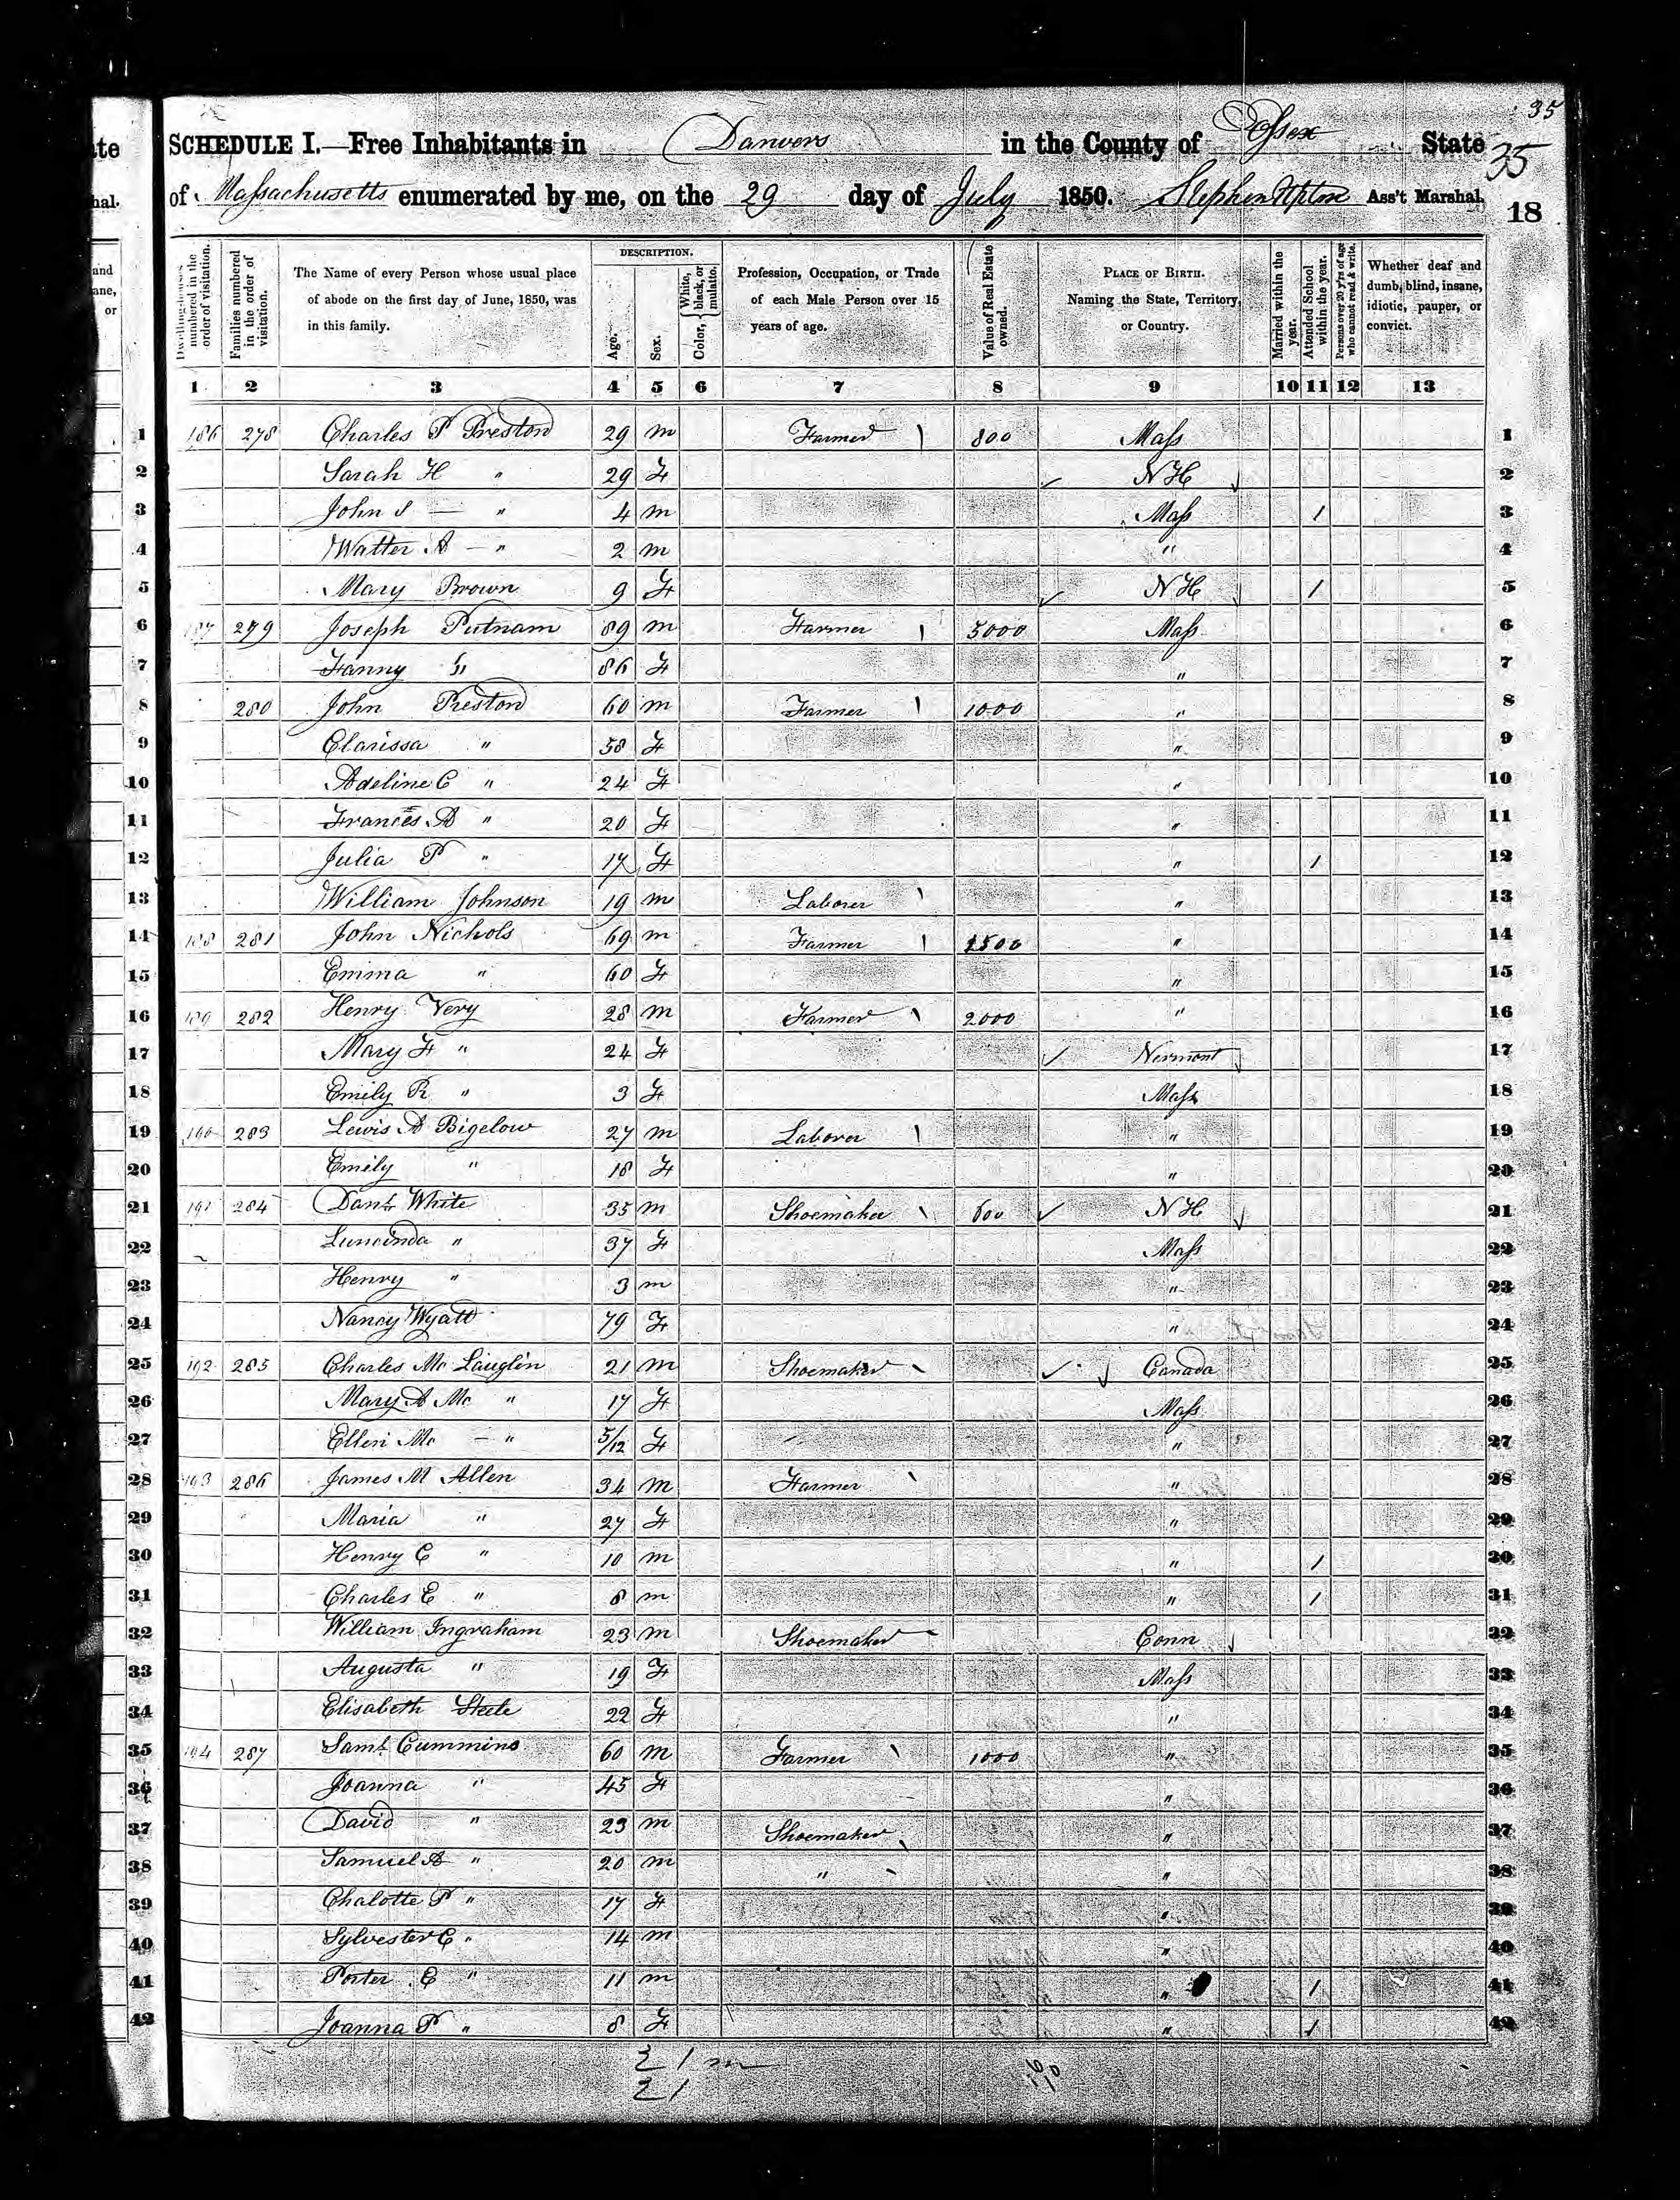 35
SCHEDULE I.—Free Inhabitants in Danvers in the County of Essex State
35
of Massachusetts enumerated by me, on the 29 day of July 1850. Stephen Upton Ass't Marshal.
18
DESCRIPTION.
Dwelling-houses numbered in the order of visitation.
Families numbered in the order of visitation.
The Name of every Person whose usual place of abode on the first day of June, 1850, was in this family.
Age.
Sex.
Color, { White, black, or mulatto.
Profession, Occupation, or Trade of each Male Person over 15 years of age.
Value of Real Estate owned.
PLACE OF BIRTH. Naming the State, Territory, or Country.
Married within the year.
Attended School within the year.
Persons over 20 y'rs of age who cannot read & write.
Whether deaf and dumb, blind, insane, idiotic, pauper, or convict.
1 2 3 4 5 6 7 8 9 10 11 12 13
1 186 278 Charles P Preston 29 m Farmer 800 Mass 1
2 Sarah H " 29 F NH 2
3 John S — " 4 m Mass 1 3
4 Walter A — " 2 m " 4
5 Mary Brown 9 F NH 1 5
6 187 279 Joseph Putnam 89 m Farmer 5000 Mass 6
7 Fanny " 86 F " 7
8 280 John Preston 60 m Farmer 1000 " 8
9 Clarissa " 58 F " 9
10 Adeline C " 24 F " 10
11 Frances A " 20 F " 11
12 Julia P " 17 F " 1 12
13 William Johnson 19 m Laborer " 13
14 188 281 John Nichols 69 m Farmer 1500 " 14
15 Emma " 60 F " 15
16 189 282 Henry Very 28 m Farmer 2000 " 16
17 Mary F " 24 F Vermont 17
18 Emily R " 3 F Mass 18
19 190 283 Lewis A Bigelow 27 m Laborer " 19
20 Emily " 18 F " 20
21 191 284 Danl White 35 m Shoemaker 600 NH 21
22 Luncinda " 37 F Mass 22
23 Henry " 3 m " 23
24 Nancy Wyatt 79 F " 24
25 192 285 Charles Mc Lauglin 21 m Shoemaker Canada 25
26 Mary A Mc " 17 F Mass 26
27 Ellen Mc — " 5/12 F " 27
28 193 286 James M Allen 34 m Farmer " 28
29 Maria " 27 F " 29
30 Henry C " 10 m " 1 30
31 Charles E " 8 m " 1 31
32 William Ingraham 23 m Shoemaker Conn 32
33 Augusta " 19 F Mass 33
34 Elisabeth Steele 22 F " 34
35 194 287 Saml Cummins 60 m Farmer 1000 " 35
36 Joanna " 45 F " 36
37 David " 23 m Shoemaker " 37
38 Samuel A " 20 m " " 38
39 Chalotte P " 17 F " 39
40 Sylvester C " 14 m " 40
41 Porter E " 11 m " 1 41
42 Joanna P " 8 F " 1 42
21 m
21